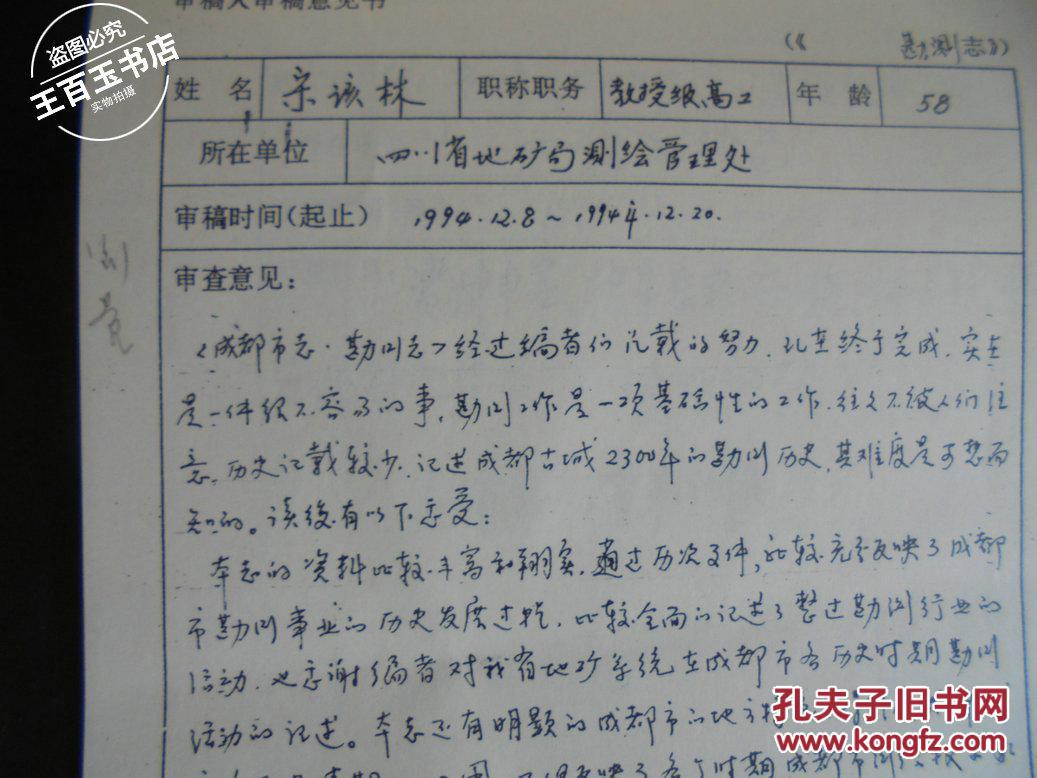 审稿人审稿意见书
(《 勘测志》)
姓 名 宋该林 职称职务 教授级高工 年 龄 58
所在单位 四川省地矿局测绘管理处
审稿时间(起止) 1994.12.8~1994年.12.20.
审查意见:
《成都市志·勘测志》经过编者们几载的努力,现在终于完成,实在
是一件很不容易的事,勘测工作是一项基础性的工作,往往不被人们注
意,历史记载较少,记述成都古城2300年的勘测历史,其难度是可想而
知的。读后有以下感受:
本志的资料比较丰富和翔实,通过历次文件,比较充分反映了成都
市勘测事业的历史发展过程,比较全面的记述了整过勘测行业的
活动,也感谢编者对我省地矿系统在成都市各历史时期勘测
活动的记述。本志还有明显的成都市的地方
反映了各个时期成都市
盗图必究
王百玉书店
实物拍摄
孔夫子旧书网
www.kongfz.com